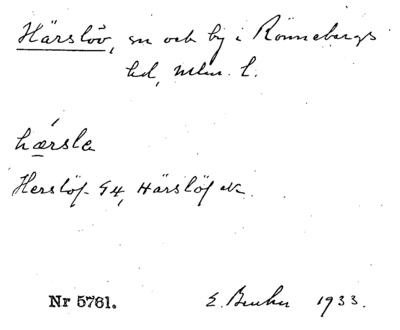 Härslöv, sn och by i Rönnebergs
hd, Mlm. l.
hærsla
Herslöf G4, Härslöf ek.
Nr 5761. 1933.